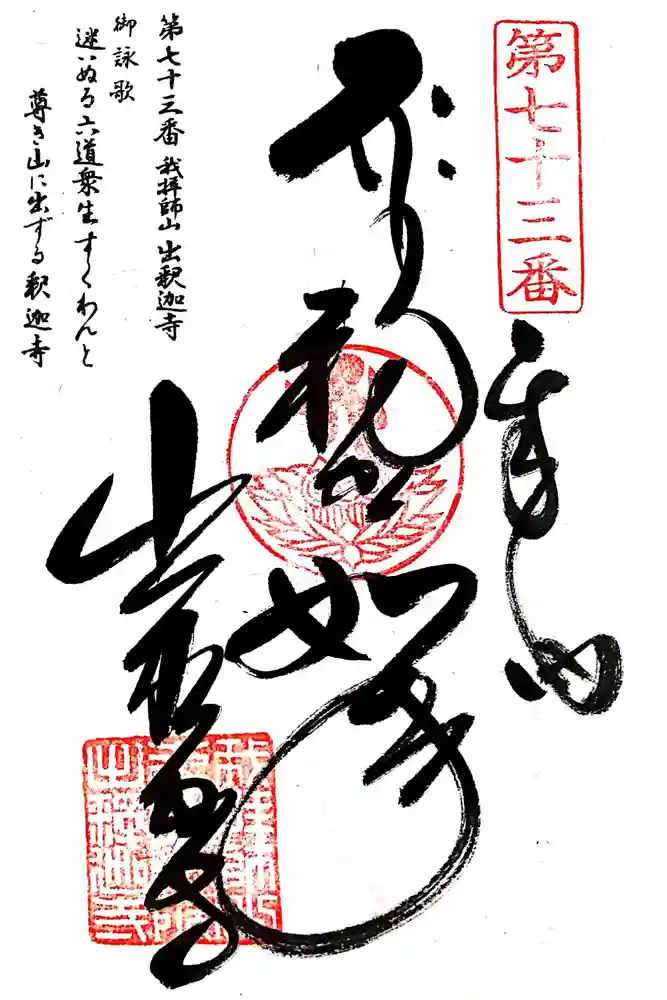 第七十三番
奉納
釈迦如来
出釈迦寺
第七十三番 我拝師山 出釈迦寺
御詠歌
迷いぬる六道衆生すくわんと
尊き山に出ずる釈迦寺
我拝師山
出釈迦寺